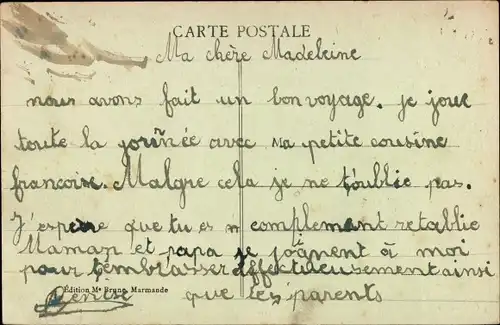 CARTE POSTALE
Ma chère Madeleine
nous avons fait un bon voyage. je joue
toute la journée avec ma petite cousine
françoise. Malgre cela je ne t'oublie pas.
J'espere que tu es complement retablie
Maman et papa se joignent à moi
pour t'emblasser affectueusement ainsi
Édition Mᵉ Brune, Marmande
Denise que tes parents